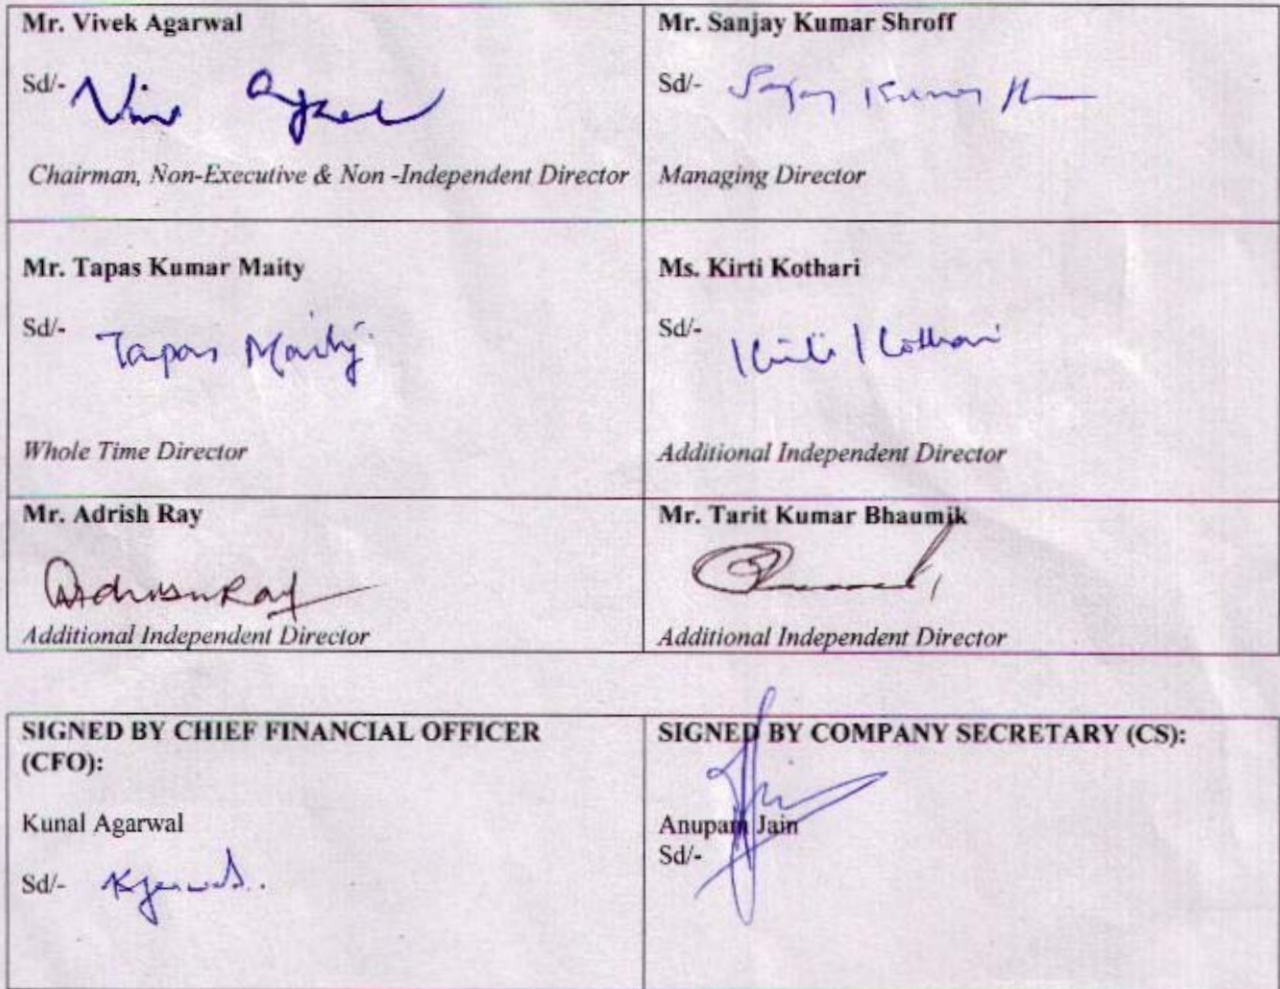 Mr. Vivek Agarwal
Sd/-
Chairman, Non-Executive & Non -Independent Director
Mr. Sanjay Kumar Shroff
Sd/- Sanjay Kumar
Managing Director
Mr. Tapas Kumar Maity
Sd/- Tapas Maity
Whole Time Director
Ms. Kirti Kothari
Sd/- Kirti Kothari
Additional Independent Director
Mr. Adrish Ray
Adrish Ray
Additional Independent Director
Mr. Tarit Kumar Bhaumik
Additional Independent Director
SIGNED BY CHIEF FINANCIAL OFFICER
(CFO):
Kunal Agarwal
Sd/-
SIGNED BY COMPANY SECRETARY (CS):
Anupam Jain
Sd/-